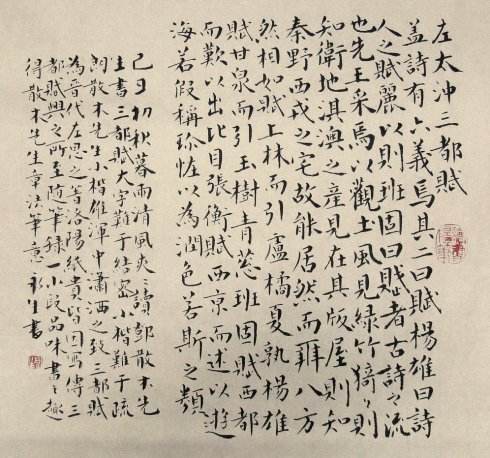 左太沖三都賦
盖詩有六義焉其二曰賦楊雄曰詩
人之賦麗以則班固曰賦者古詩之流
也先王采焉以觀土風見緑竹猗〻則
知衛地淇澳之產見在其版屋則知
秦野西戎之宅故能居然而辨八方
然相如賦上林而引盧橘夏孰楊雄
賦甘泉而引玉樹青葱班固賦西都
而歎以出比目張衡賦西京而述以遊
海若假稱珍怪以為潤色若斯之類
己丑初秋暮雨清風爽〻讀鄧散木先
生書三都賦大字難于結密小楷難于疏
朗散木先生小楷雄渾中瀟洒之致三都賦
為晉代左思之著洛陽紙貴皆因傳三
都賦興之所至随筆一小段品味書趣
得散木先生章法筆意生書